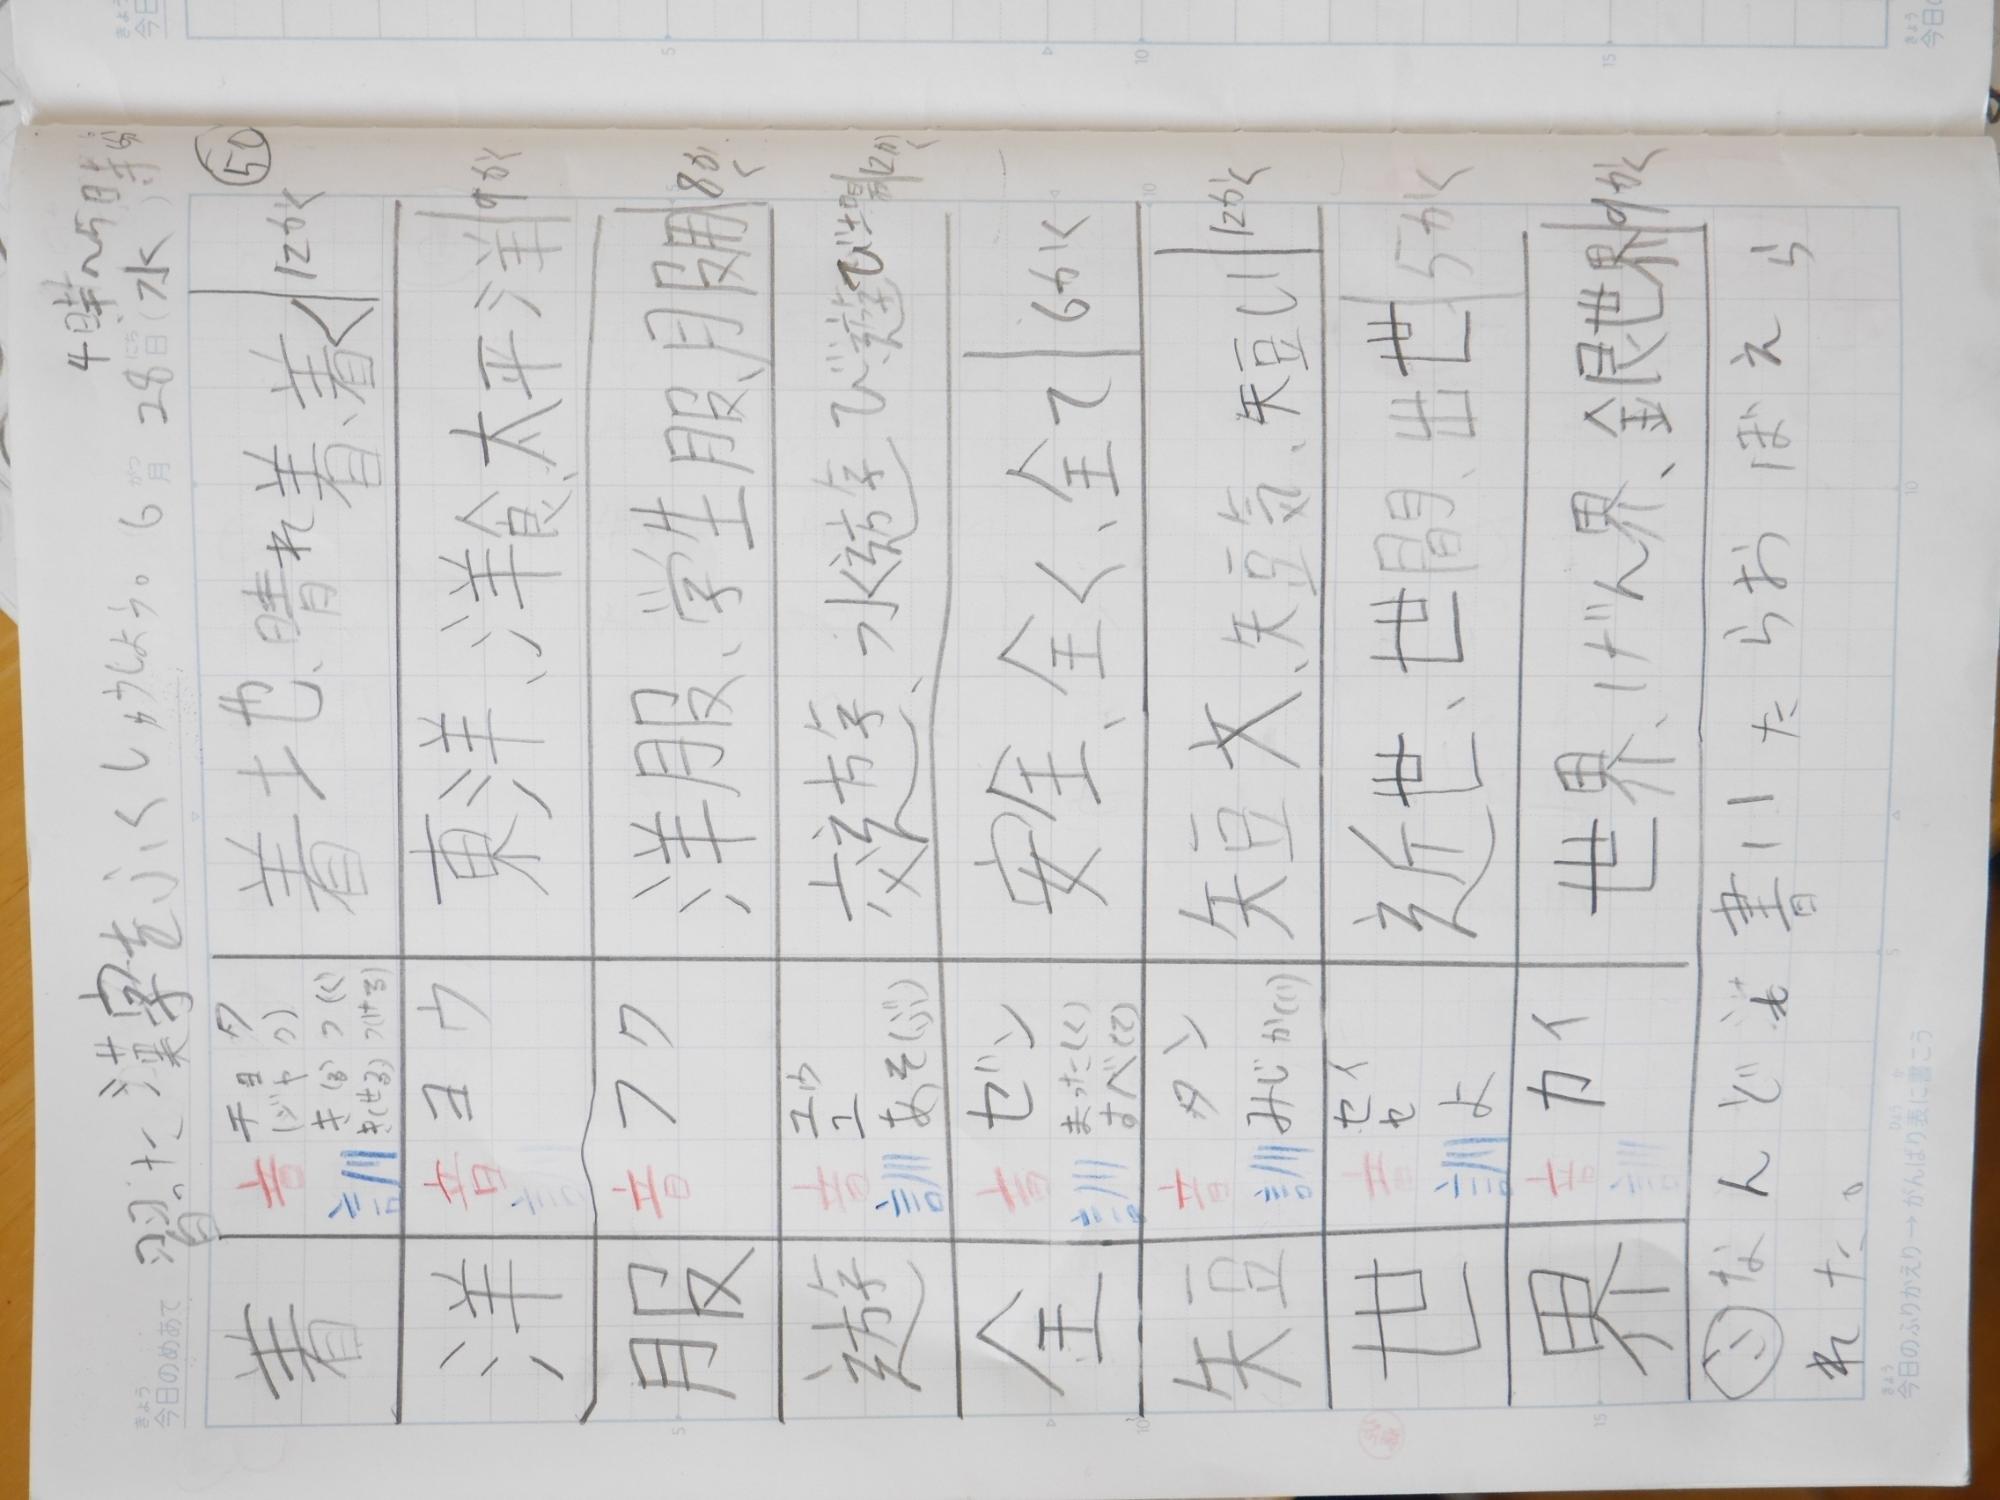 4時~5時15分
習った漢字をふくしゅうしよう。 6月28日(水)
きょう
今日のめあて
がつ
にち
50
着 音 チョ タ (ジャク) 訓 き(る) つ(く) き(せる) つ(ける) 着土也、晴れ着、着く 12かく
洋 音 ヨウ 訓 東洋、洋食、太平洋 9かく
服 音 フク 洋服、学生服、月服 8かく
遊 音 ユウ ユ 訓 あそ(ぶ) 交遊、水遊び、遊び 12かく
全 音 ゼン 訓 まった(く) すべ(て) 安全、全く、全て 6かく
短 音 タン 訓 みじか(い) 短文、短気、短い 12かく
世 音 セイ セ 訓 よ 近世、世間、出世 5かく
界 音 カイ 訓 世界、げん界、銀世界 9かく
ふ なんども書いたらおぼえら
れた。
きょう
今日のふりかえり→がんばり表に書こう
ひょう
か
5
10
15